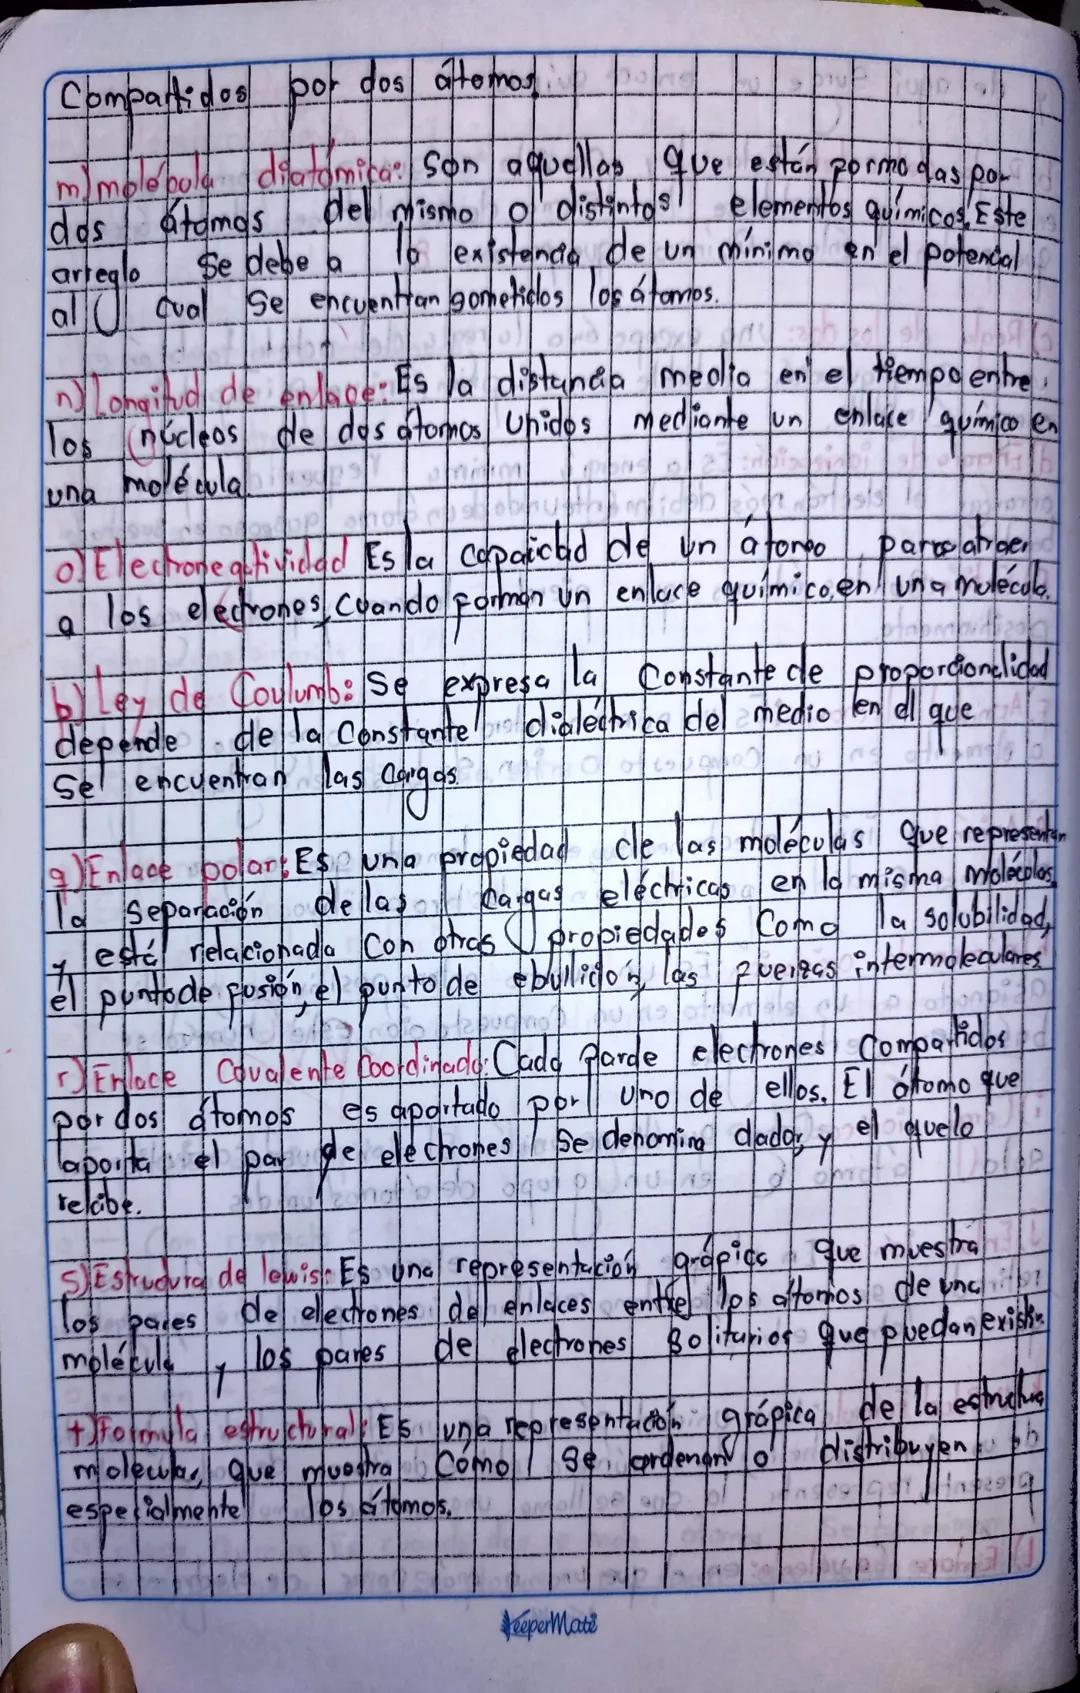 Compartidos por dos átomos.
m) molécola diatómica: Son aquellas que están formadas por
dos átomos del mismo o distintos elementos químicos, Este
arreglo se debe a la existencia de un mínimo en el potencial
al cual se encuentran sometidos los átomos.
n) Longitud de enlace: Es la distancia media en el tiempo entre
los núcleos de dos átomos unidos mediante un enlace químico en
una molécula
o) Electronegatividad Es la capaicdad de un átomo para atraer
a los electrones, cuando forman un enlace químico, en una molécula.
p) Ley de Coulumb: Se expresa la Constante de proporcionalidad
depende de la Constante dieléctrica del medio en el que
Se encuentran las Cargas.
q) Enlace polar: Es una propiedad de las moléculas que representan
la Separación de las Cargas eléctricas en la misma moléculas,
y está relacionada Con otras propiedades Como la solubilidad,
el punto de fusión, el punto de ebullición, las fuerzas intermoleculares
r) Enlace Covalente Coordinado: Cada par de electrones Compartidos
por dos átomos es aportado por uno de ellos. El átomo que
aporta el par de electrones Se denomina dador, y el que lo
recibe.
S) Estructura de lewis: Es una representación gráfica que muestra
los pares de electrones de enlaces entre los átomos de una
molécula y los pares de electrones Solitarios que puedan existir
t) Formula estructural: Es una representación gráfica de la estructura
molecular, que muestra Cómo Se ordenan o distribuyen
especialmente los átomos.
KeeperMate